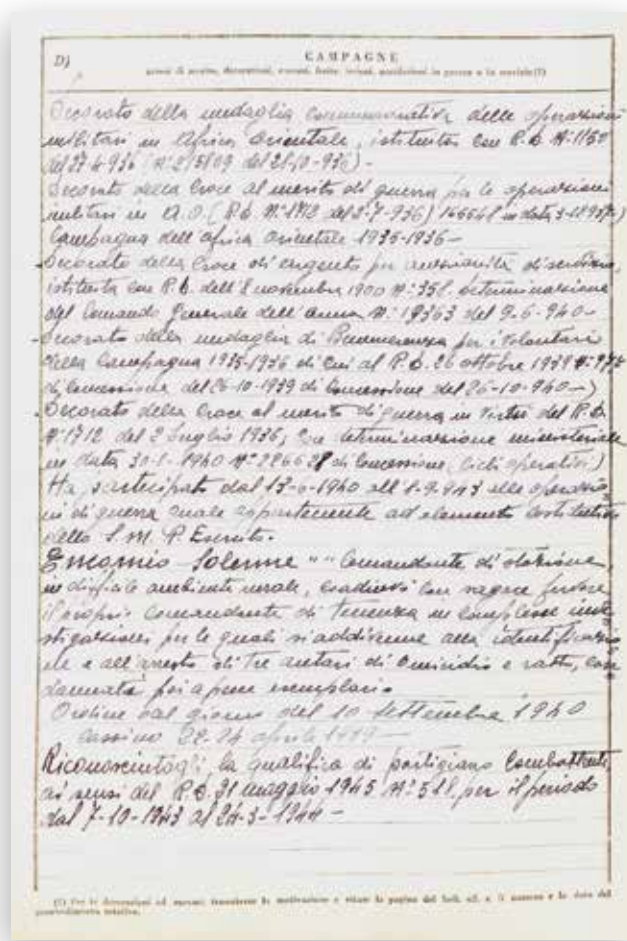 D)
CAMPAGNE
Decorato della medaglia commemorativa delle operazioni
militari in Africa Orientale, istituita con R.D. N° 1150
del 27-4-936 (N° 215809 del 21-10-936) -
Decorato della Croce al merito di guerra per le operazioni
militari in A.O. (R.D. N° 1712 del 2-7-936)
Campagna dell'Africa Orientale 1935-1936 -
Decorato della Croce di argento per anzianità di servizio,
istituita con R.D. dell'8 novembre 1900 N° 358. determinazione
del Comando Generale dell'Arma N° 19363 del 9-6-940 -
Decorato della medaglia di Benemerenza per i Volontari
della Campagna 1935-1936 di cui al R.D. 26 ottobre 1939 N°
di concessione del 26-10-1939 di concessione del 26-10-940 -)
Decorato della Croce al merito di guerra in virtù del R.D.
N° 1712 del 2 luglio 1936, con determinazione ministeriale
in data 30-1-1940 N° di concessione (cicli operativi)
Ha partecipato dal 13-6-1940 all'8-9-943 alle operazio
ni di guerra quale appartenente ad elemento costitutivo
dello S.M.R. Esercito.
Encomio Solenne "" Comandante di stazione,
in difficile ambiente rurale, coadiuvò con
il proprio Comandante di Tenenza in complesse inve
stigazioni per le quali si addivenne alla identificazio
ne e all'arresto di tre autori di omicidio e ratto, con
dannati poi a pene esemplari.
Ordine del giorno del 10 settembre 1940
Cassino 22.24 aprile
Riconosciutagli la qualifica di partigiano Combattente,
ai sensi del R.D. 31 maggio 1945 N° 518 per il periodo
dal 7-10-1943 al 24-3-1944 -
(1) Per le decorazioni ed encomi trascrivere la motivazione e citare la pagina del boll. uff. e il numero e la data del